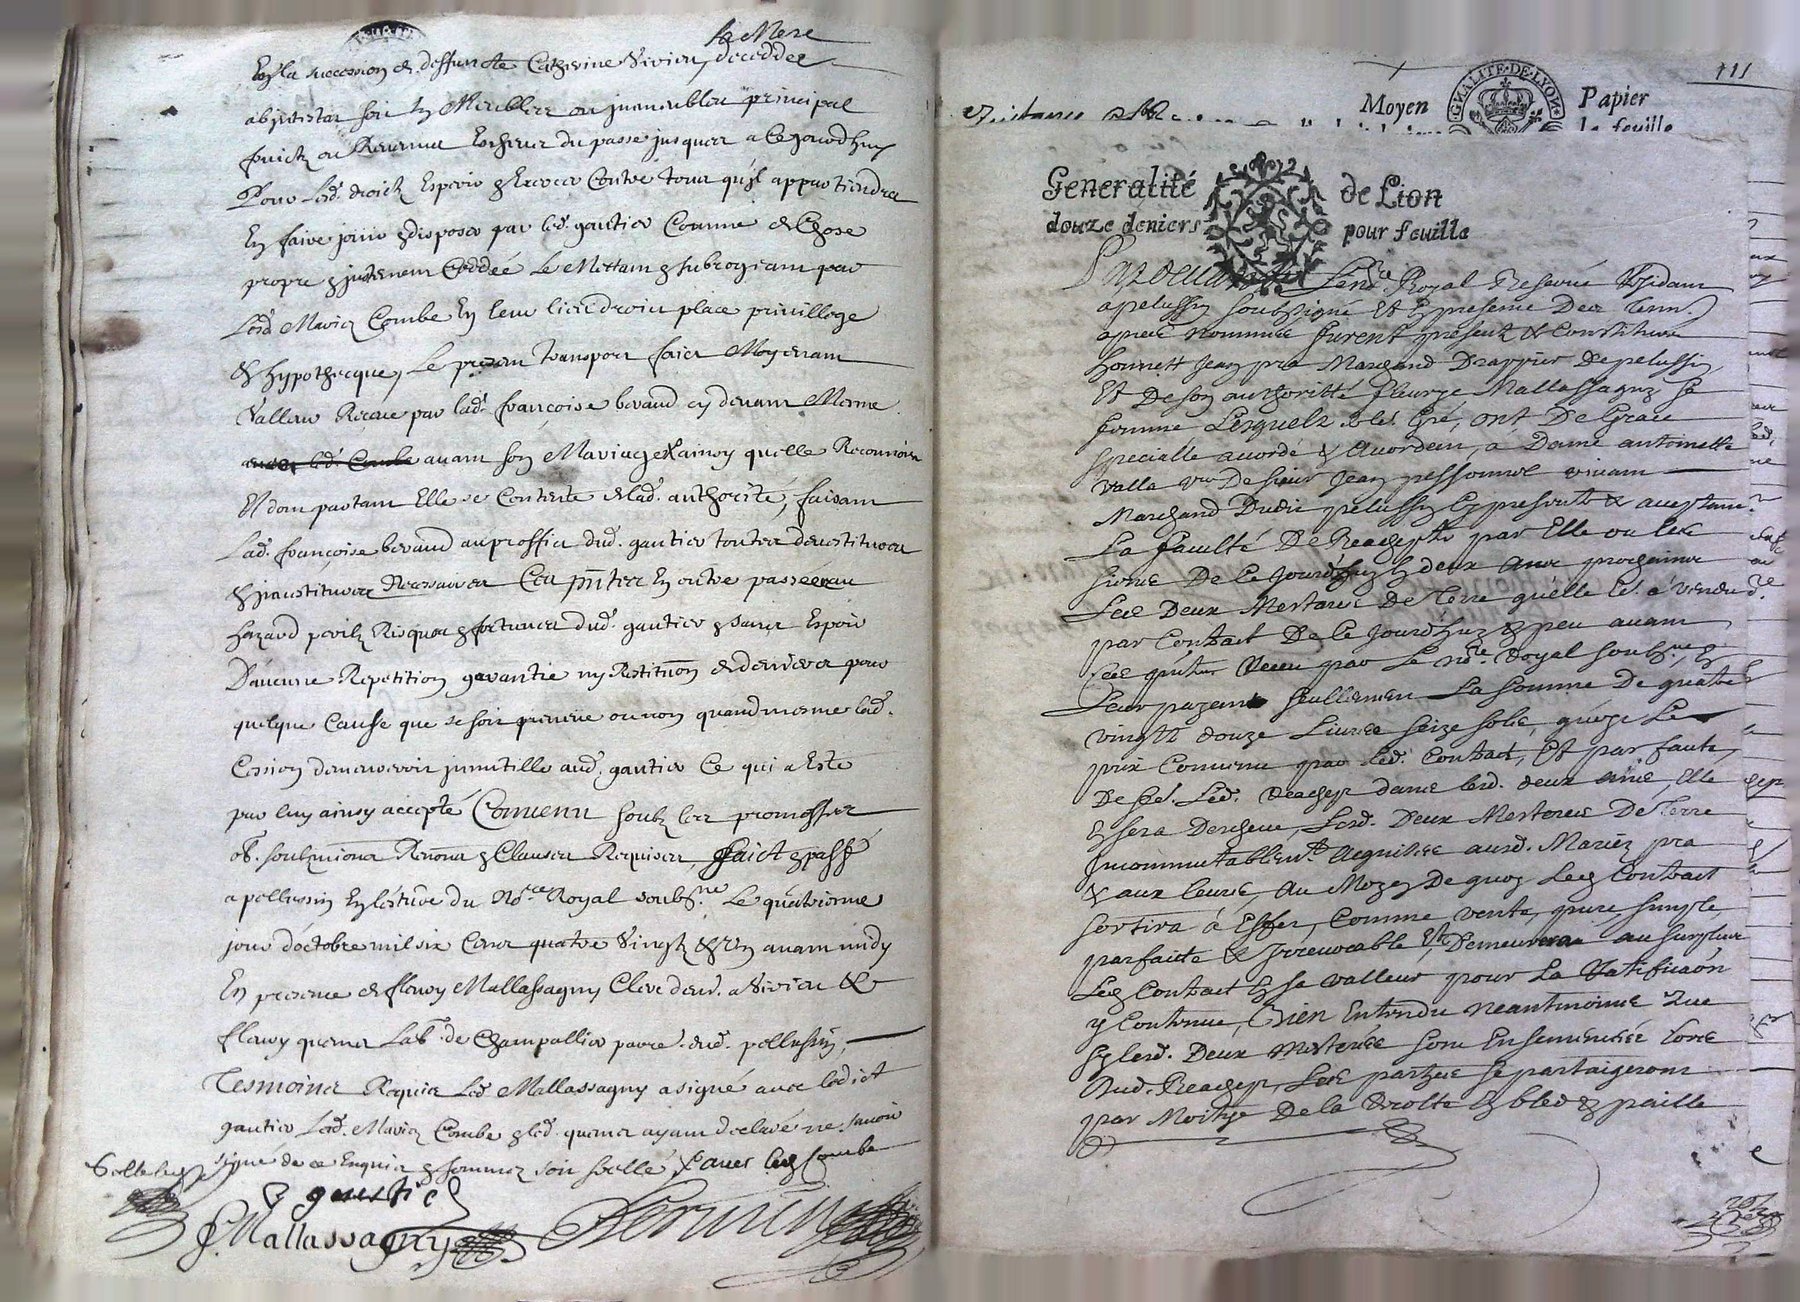 sa Mere
En la succession de deffuncte Catherine Vivien, decedée
abjntestat soit En Meubles ou jmmeubles principal
fruictz ou Revenus Escheus du passé jusques a Ce jourdhuy
Pour Lesd. droictz Esperer & Exercer Contre tous qu'jl appartiendra
En faire jouir & disposer par led. gautier Comme de Chose
propre & justement Ceddée Le Mettant & subrogeant par
Lesd Mariez Combe En leur lieu droict place privillege
& hypothecque, Le presen transport faict Moyenant
Valleur Receue par lad. françoise beraud cy devant Mesme
avant son Mariage Rainsy quelle Reconnoist
Et dont partant Elle se Contente de lad. authorité, faisant
Lad. françoise beraud au proffict dud. gautier toutes devestitures
& jnvestitures Necessaires Ces pntes En outre passées au
hazard perilz Risques & fortunes dud. gautier & sans Espoir
D'aucune Repetition garantie ny Restitution de deniers pour
quelque Cause que se soit preveue ou non quand mesme lad.
Cession demeureroit jnnutille aud. gautier Ce qui a Esté
par luy ainsy accepté Convenu soubz les promesses
ob. soubzmions Renons & Clauses Requises, faict & passé
a pellussin En l'estude du No.re Royal soubz.né Le quatriesme
jour d'octobre mil six Cens quatre Vingtz & Un avant midy
En presence de fleury Mallassagny Clerc demt. a Virieu &
fleury quema Lab.r de Champallier parre. dud. pellussin,
Tesmoins Requis Led Mallassagny a signé avec ledict
gautier Lesd. Mariez Combe & led. quema ayant declaré ne scavoir
signé de ce Enquis & sommez
gautier
f. Mallassagny
111
Moyen Papier
la feuille
GNALITE·DE·LYON
Generalité de Lion
douze deniers pour feuille
Pardevant Le no.re Royal Reservé Residant
a pelussin soubzsigné Et En presence Des tesm.
apres nommés furent present & Constitues
honnest Jean pra Marchand Drappier De pelussin
Et De son authoritté fleurye Mallassagny sa
femme Lesquelz de Gré, ont De Grace
specialle acordé & acordent, a Dame antoinette
Valla vve De sieur Jean pessonnel vivant
Marchand Dudit pelussin Cy presente & aceptant
La faculté De Reachepter par Elle ou les
siens De Ce Jourdhuy En deux ans prochains
Les Deux Mesterées De terre quelle le. a vendu
par Contract De Ce Jourdhuy & peu avant
Ces pntes Receu par Le no.re Royal soubz.né En
Leur payant seullement La somme De quatre
vingtz douze Livres seize solz, quege Le
prix Convenu par Led. Contract, Et par faute
De fe. Led. Reachept dans lesd. deux años, Elle
En sera Descheue, Lesd. Deux Mesterées De terre
Jncommutablemt. acquises ausd. Mariez pra
& aux leurs, au Moyen De quoy Led Contract
sortira à Effet, Comme, vente, pure, simple,
parfaite & Jrrevocable Et Demeurera au surplus
Led Contract En sa valleur pour La Ratificaon
y Contenue, Bien Entendu Neantmoins Que
sy lesd. Deux Mesterées sont Ensemencées Lors
Dud. Reachept, Les parties se partaigeront
par Moitye De la Recolte En bled & paille